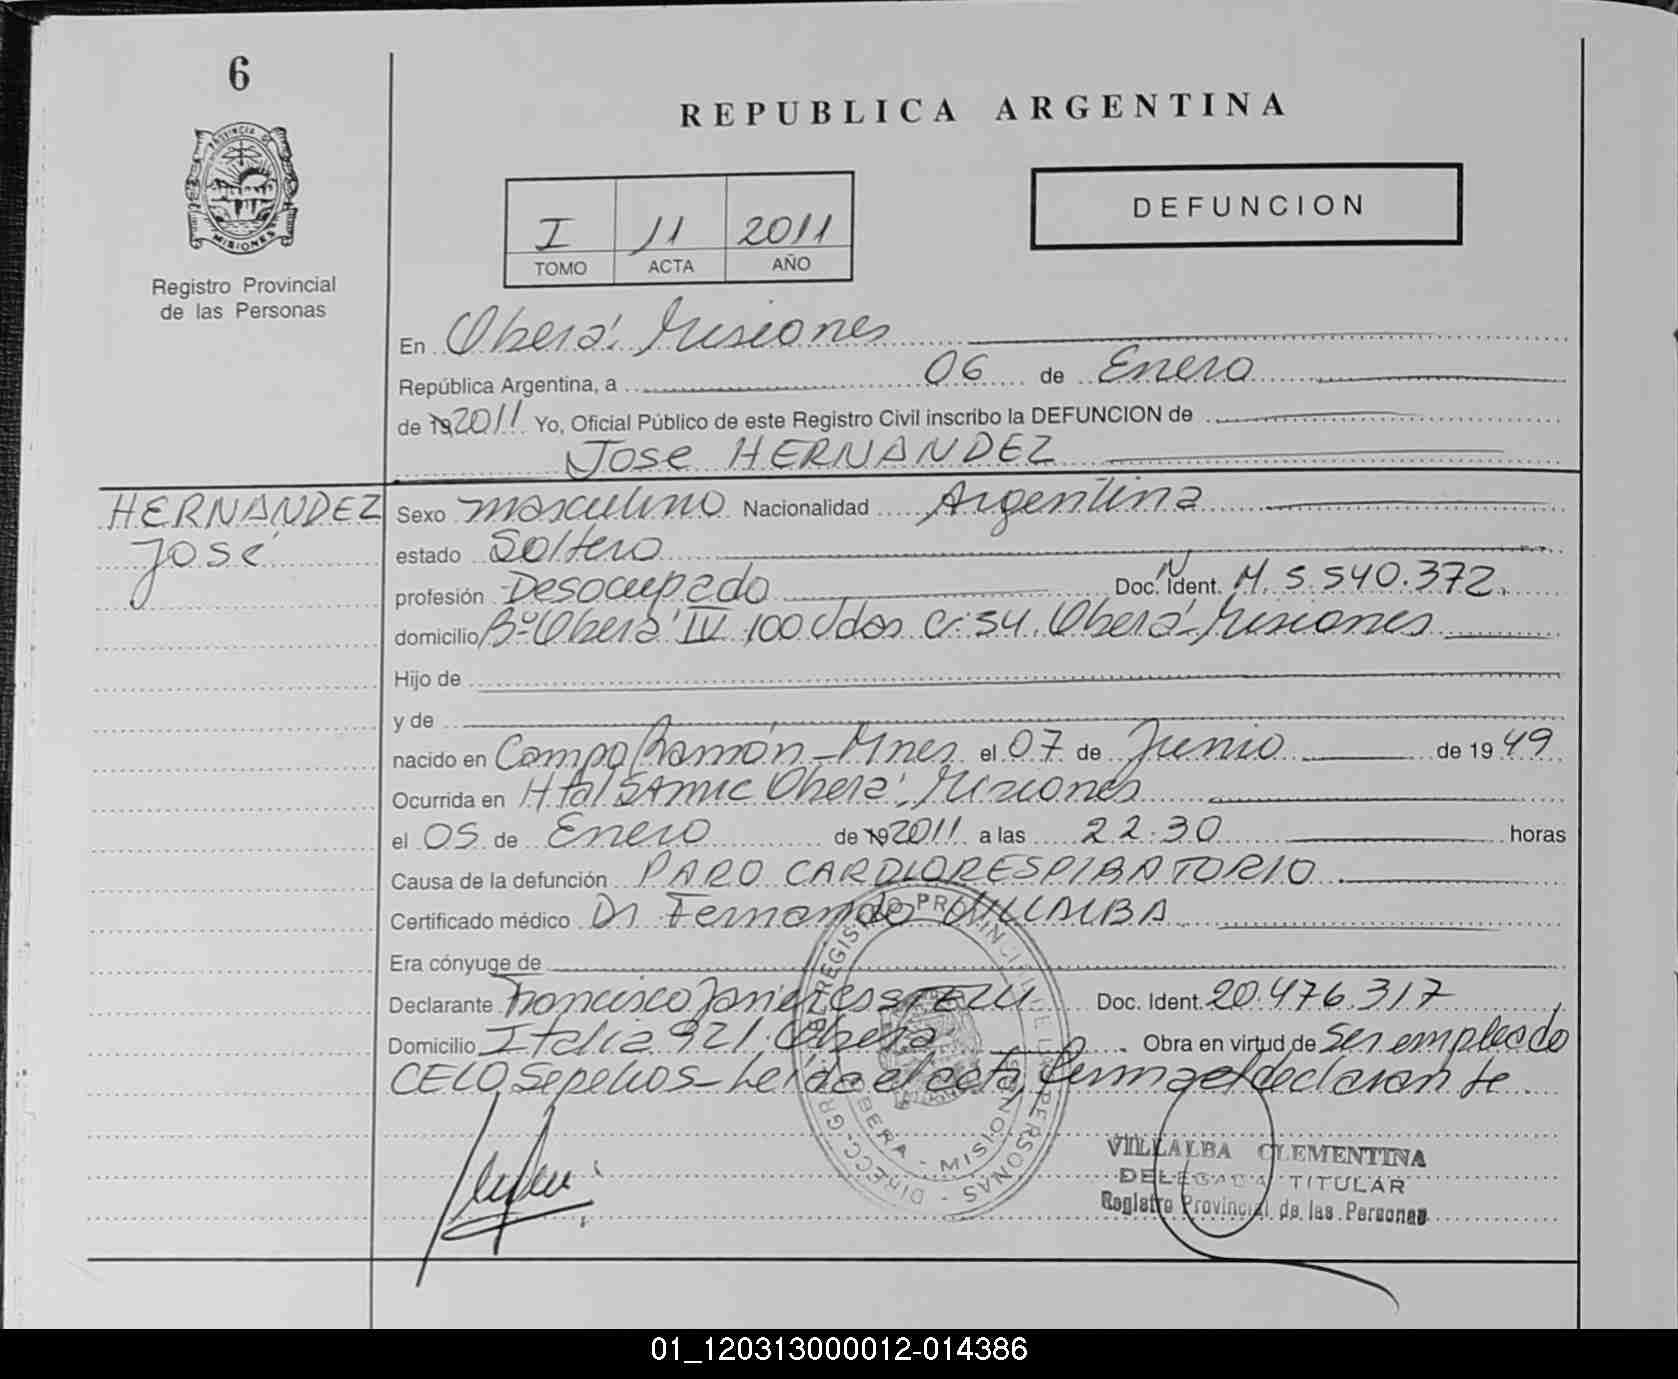 6
PROVINCIA DE
MISIONES
Registro Provincial
de las Personas
REPUBLICA ARGENTINA
I 11 2011
TOMO ACTA AÑO
DEFUNCION
En Oberá, Misiones
República Argentina, a 06 de Enero
de 19 2011 Yo, Oficial Público de este Registro Civil inscribo la DEFUNCION de
Jose HERNANDEZ
HERNANDEZ
José
Sexo masculino Nacionalidad Argentina
estado Soltero
profesión Desocupado Doc. N Ident. M. 5.540.372.
domicilio Bº Oberá IV 100 Vdas C: 54. Oberá-Misiones
Hijo de
y de
nacido en Campo Ramón-Mnes el 07 de Junio de 19 49
Ocurrida en Htal SAMIC Oberá, Misiones
el 05 de Enero de 19 2011 a las 22:30 horas
Causa de la defunción PARO CARDIORESPIRATORIO
Certificado médico Dr Fernando VILLALBA
Era cónyuge de
Declarante Francisco Doc. Ident. 20.476.317
Domicilio Italia 921. Oberá Obra en virtud de ser empleado
CELO Sepelios- Leída el acta, firma el declarante
REGISTRO PROVINCIAL DE LAS PERSONAS - DIRECC. GR
OBERA - MISIONES
VILLALBA CLEMENTINA
DELEGADA TITULAR
Registro Provincial de las Personas
01_120313000012-014386